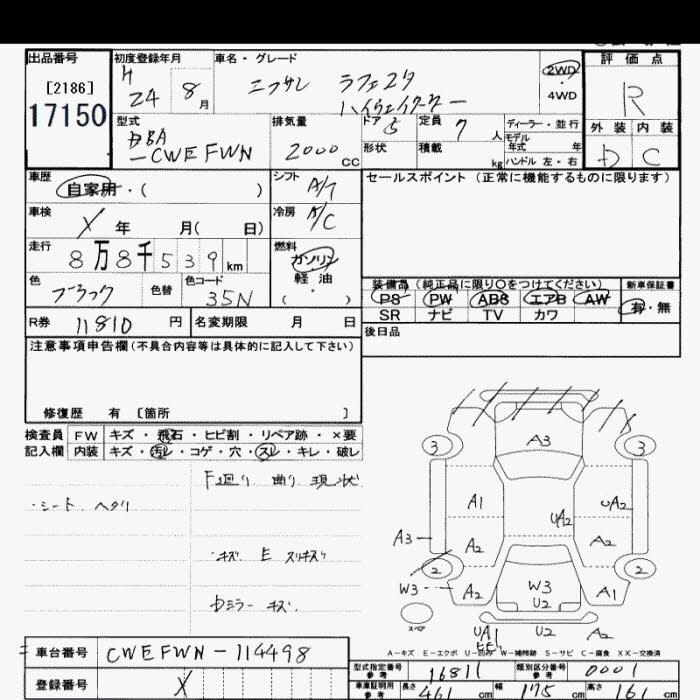 出品番号 初度登録年月 車名・グレード 評価点
[2186] H 24 8 月 ニッサン ラフェスタ 2WD R
17150 ハイウェイスター 4WD
型式 排気量 ドア 5 定員 7 人 ディーラー・並行 外装 内装
DBA 2000 cc 形状 積載 kg モデル年式 年 D C
-CWEFWN ハンドル 左・右
車歴 自家用・( ) シフト A/T セールスポイント (正常に機能するものに限ります)
車検 年 月( 日) 冷房 A/C
走行 8万8千539 km 燃料 ガソリン
色 ブラック 色替 色コード 35N 軽油
( )
装備品 (純正品に限り○をつけてください) 新車保証書
PS PW ABS エアB AW 有・無
SR ナビ TV カワ
R券 11810 円 名変期限 月 日 後日品
注意事項申告欄(不具合内容等は具体的に記入して下さい)
修復歴 有 [箇所 ]
検査員 FW キズ・飛石・ヒビ割・リペア跡・×要
記入欄 内装 キズ・汚レ・コゲ・穴・スレ・キレ・破レ
F廻り 曲り 現状
・シート ヘタリ
・キズ E スリキズ
Dミラー キズ
A3
3 3
A1 UA2 UA2
A3 A2 A2
2 2
W3 A2 W3 U2 A1
スペア UA1 U2 A2
A-キズ E-エクボ U-凹み W-補修跡 S-サビ C-腐食 XX-交換済
車台番号 CWEFWN-114498
登録番号 X
型式指定番号 参考 16811 類別区分番号 参考 0001
車庫証明用 参考 長さ 461 cm 幅 175 cm 高さ 161 cm